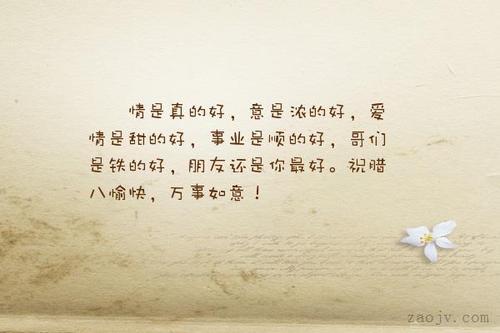 情是真的好，意是浓的好，爱
情是甜的好，事业是顺的好，哥们
是铁的好，朋友还是你最好。祝腊
八愉快，万事如意！
zaojv.com